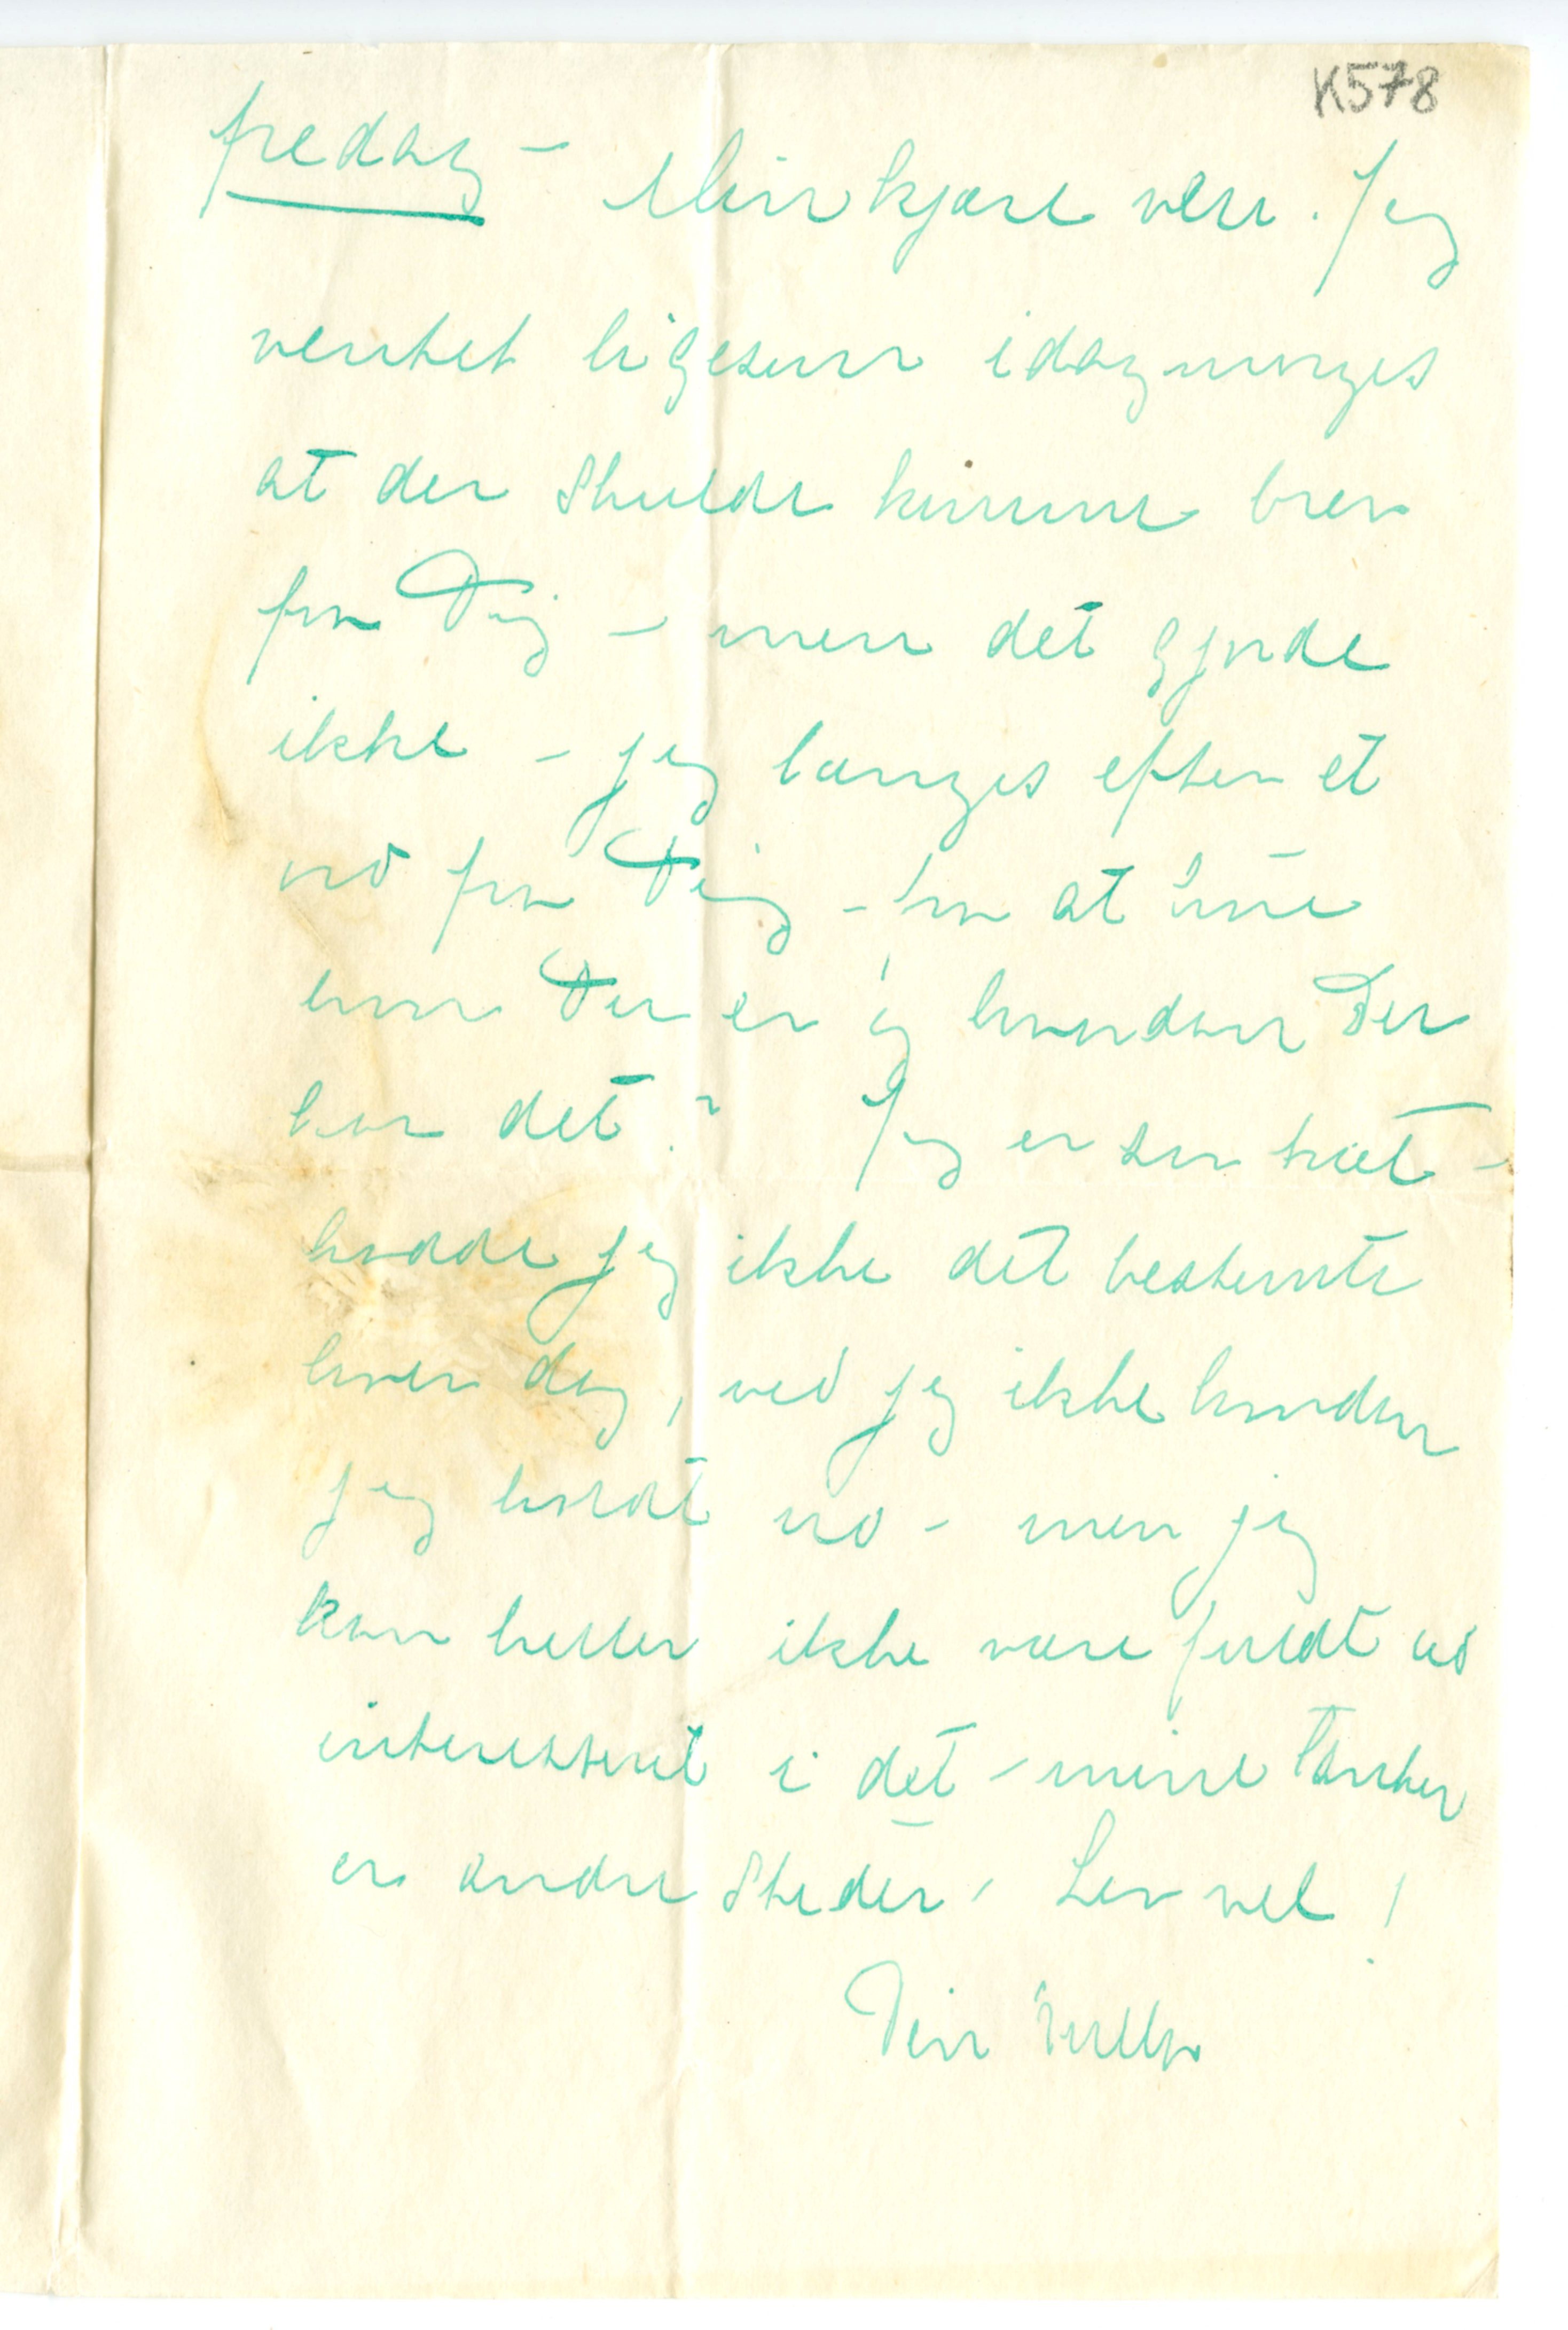 K578
fredag - Min kjære ven. Jeg
ventet ligesom idagmorges
at der skulde komme brev
fra Dig - men det gjorde
ikke - jeg længes efter et
ord fra Dig - for at vide
hvor Du er og hvordan Du
har det? Jeg er saa træt -
hadde jeg ikke det bestemte
hver dag, ved jeg ikke hvordan
jeg holdt ud - men jeg
kan heller ikke være fuldt ud
interesseret i det - mine tanker
er andre steder - Lev vel!
Din